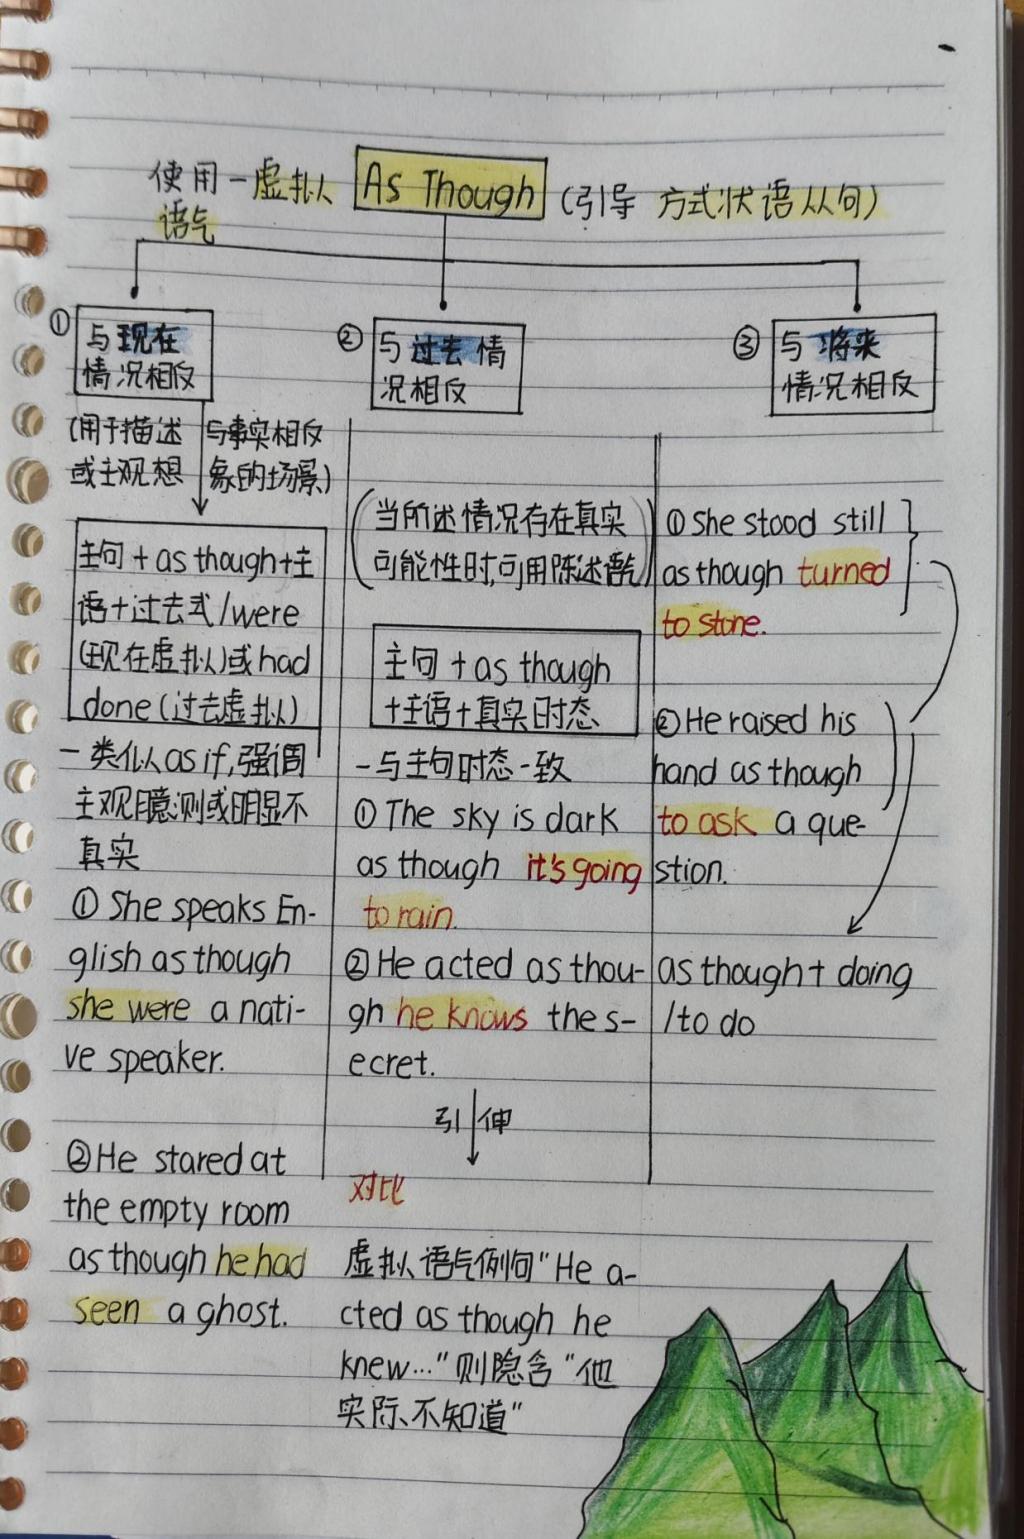 使用-虚拟 As Though (引导 方式状语从句)
语气
① 与现在
情况相反
② 与过去情
况相反
③ 与将来
情况相反
(用于描述 与事实相反
或主观想 象的场景)
主句+as though+主
语+过去式/were
(现在虚拟)或had
done(过去虚拟)
-类似as if,强调
主观臆测或明显不
真实
①She speaks En-
glish as though
she were a nati-
ve speaker.
②He stared at
the empty room
as though he had
seen a ghost.
(当所述情况存在真实
可能性时,可用陈述语气)
主句+as though
+主语+真实时态
-与主句时态一致
①The sky is dark
as though it's going
to rain.
②He acted as thou-
gh he knows the s-
ecret.
引伸
对比
虚拟语气例句"He a-
cted as though he
knew..."则隐含"他
实际不知道"
①She stood still
as though turned
to stone.
②He raised his
hand as though
to ask a que-
stion.
as though+doing
/to do